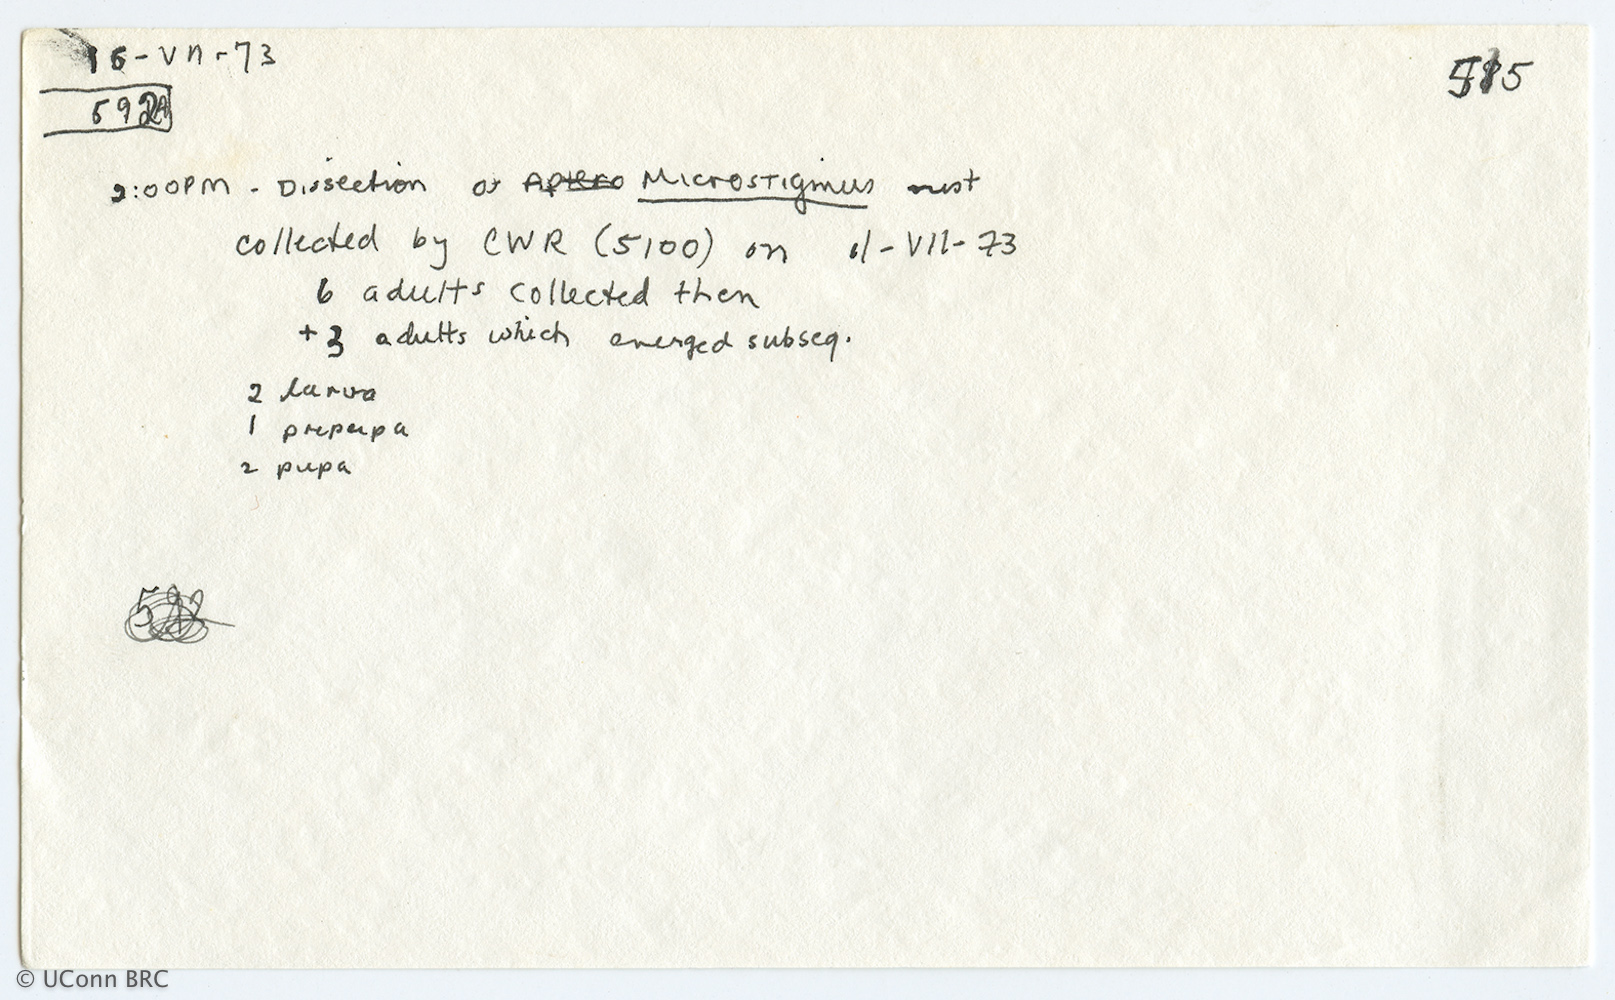 16-VII-73
515
592A
2:00PM - Dissection of Aptero Microstigmus nest
collected by CWR (5100) on 11-VII-73
6 adults collected then
+ 3 adults which emerged subseq.
2 larva
1 prepupa
2 pupa
592
© UConn BRC